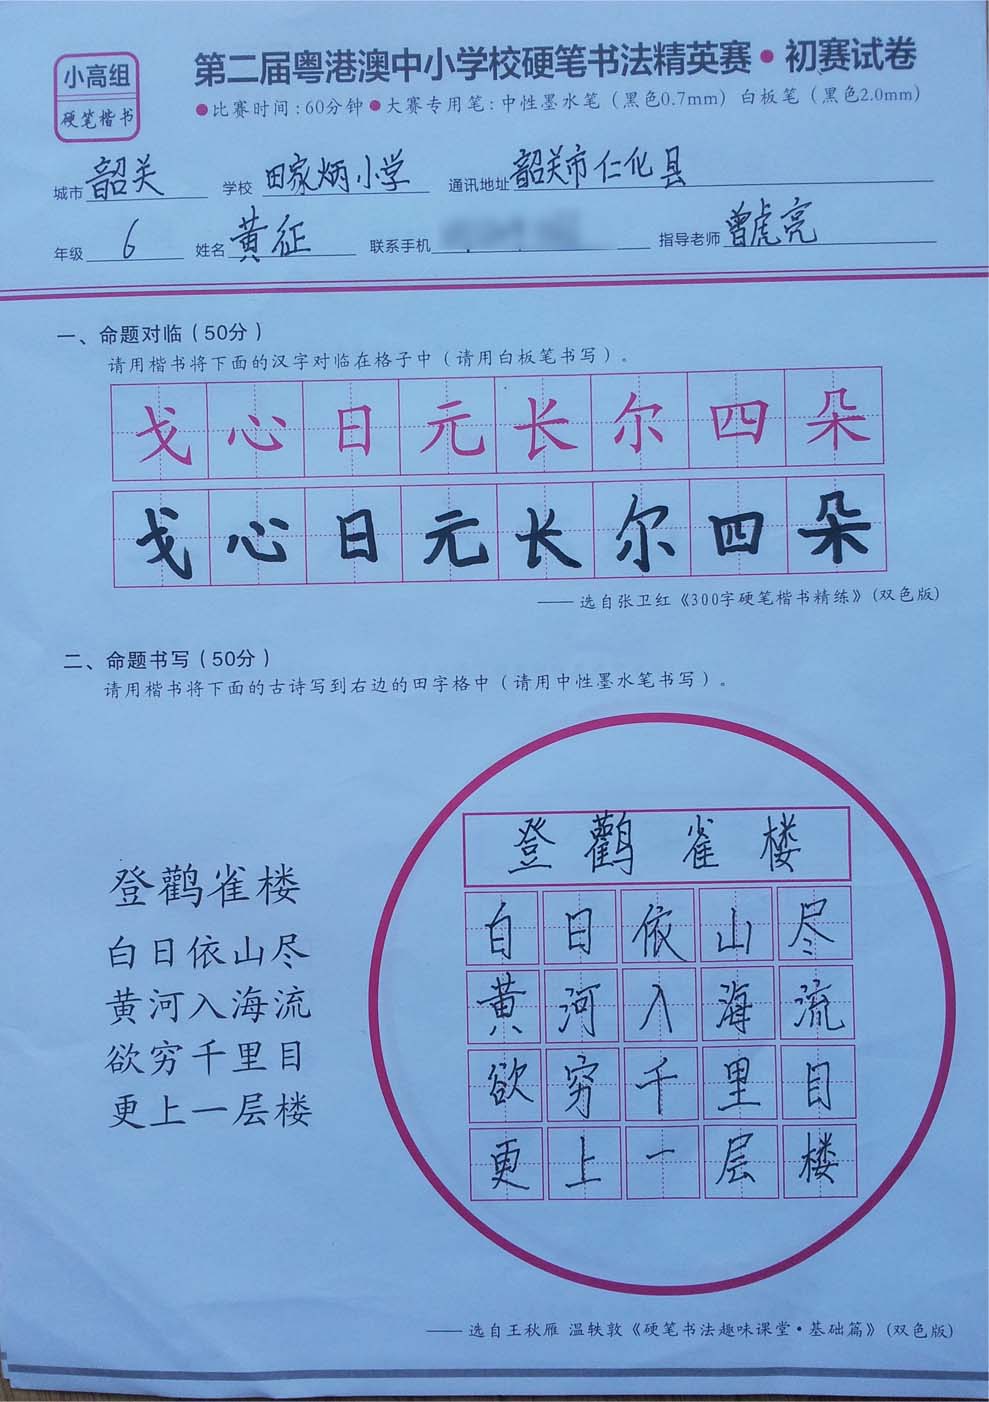 小高组
硬笔楷书
第二届粤港澳中小学校硬笔书法精英赛•初赛试卷
●比赛时间:60分钟●大赛专用笔:中性墨水笔（黑色0.7mm）白板笔（黑色2.0mm）
城市 韶关 学校 田家炳小学 通讯地址 韶关市仁化县
年级 6 姓名 黄征 联系手机 指导老师 曾虎亮
一、命题对临（50分）
请用楷书将下面的汉字对临在格子中（请用白板笔书写）。
戈心日元长尔四朵
戈心日元长尔四朵
—— 选自张卫红《300字硬笔楷书精练》(双色版)
二、命题书写（50分）
请用楷书将下面的古诗写到右边的田字格中（请用中性墨水笔书写）。
登鹳雀楼
白日依山尽
黄河入海流
欲穷千里目
更上一层楼
登鹳雀楼
白日依山尽
黄河入海流
欲穷千里目
更上一层楼
—— 选自王秋雁 温轶敦《硬笔书法趣味课堂·基础篇》(双色版)